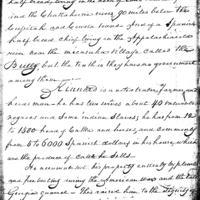 half breed, living in the
and the Chattahoucie river 90 miles below the
And of a Spanish
half breed chief living on the Appalachicola
river near the micasuka village called the
Bully but the truth is they have no government
among them
Kinnard is a noted trader, farmer, and
herdsman he has two wives about 40 valuable
negroes and some Indian Slaves; he has from 12
to 1500 head of cattle and horses, and commonly
from 5 to 6000 Spanish dollars in his house, which
are the produce of cattle he sells.
He accumulated his property entirely by plunder
and freebooting during the American war and the
Georgia quarrel this raised him to the dignity